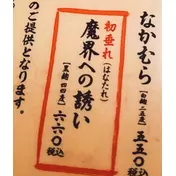 なかむら
【白麹 二五度】
五五〇
税込
初垂れ
(はなたれ)
魔界への誘い
【黒麹 四四度】
六六〇
税込
のご提供となります。